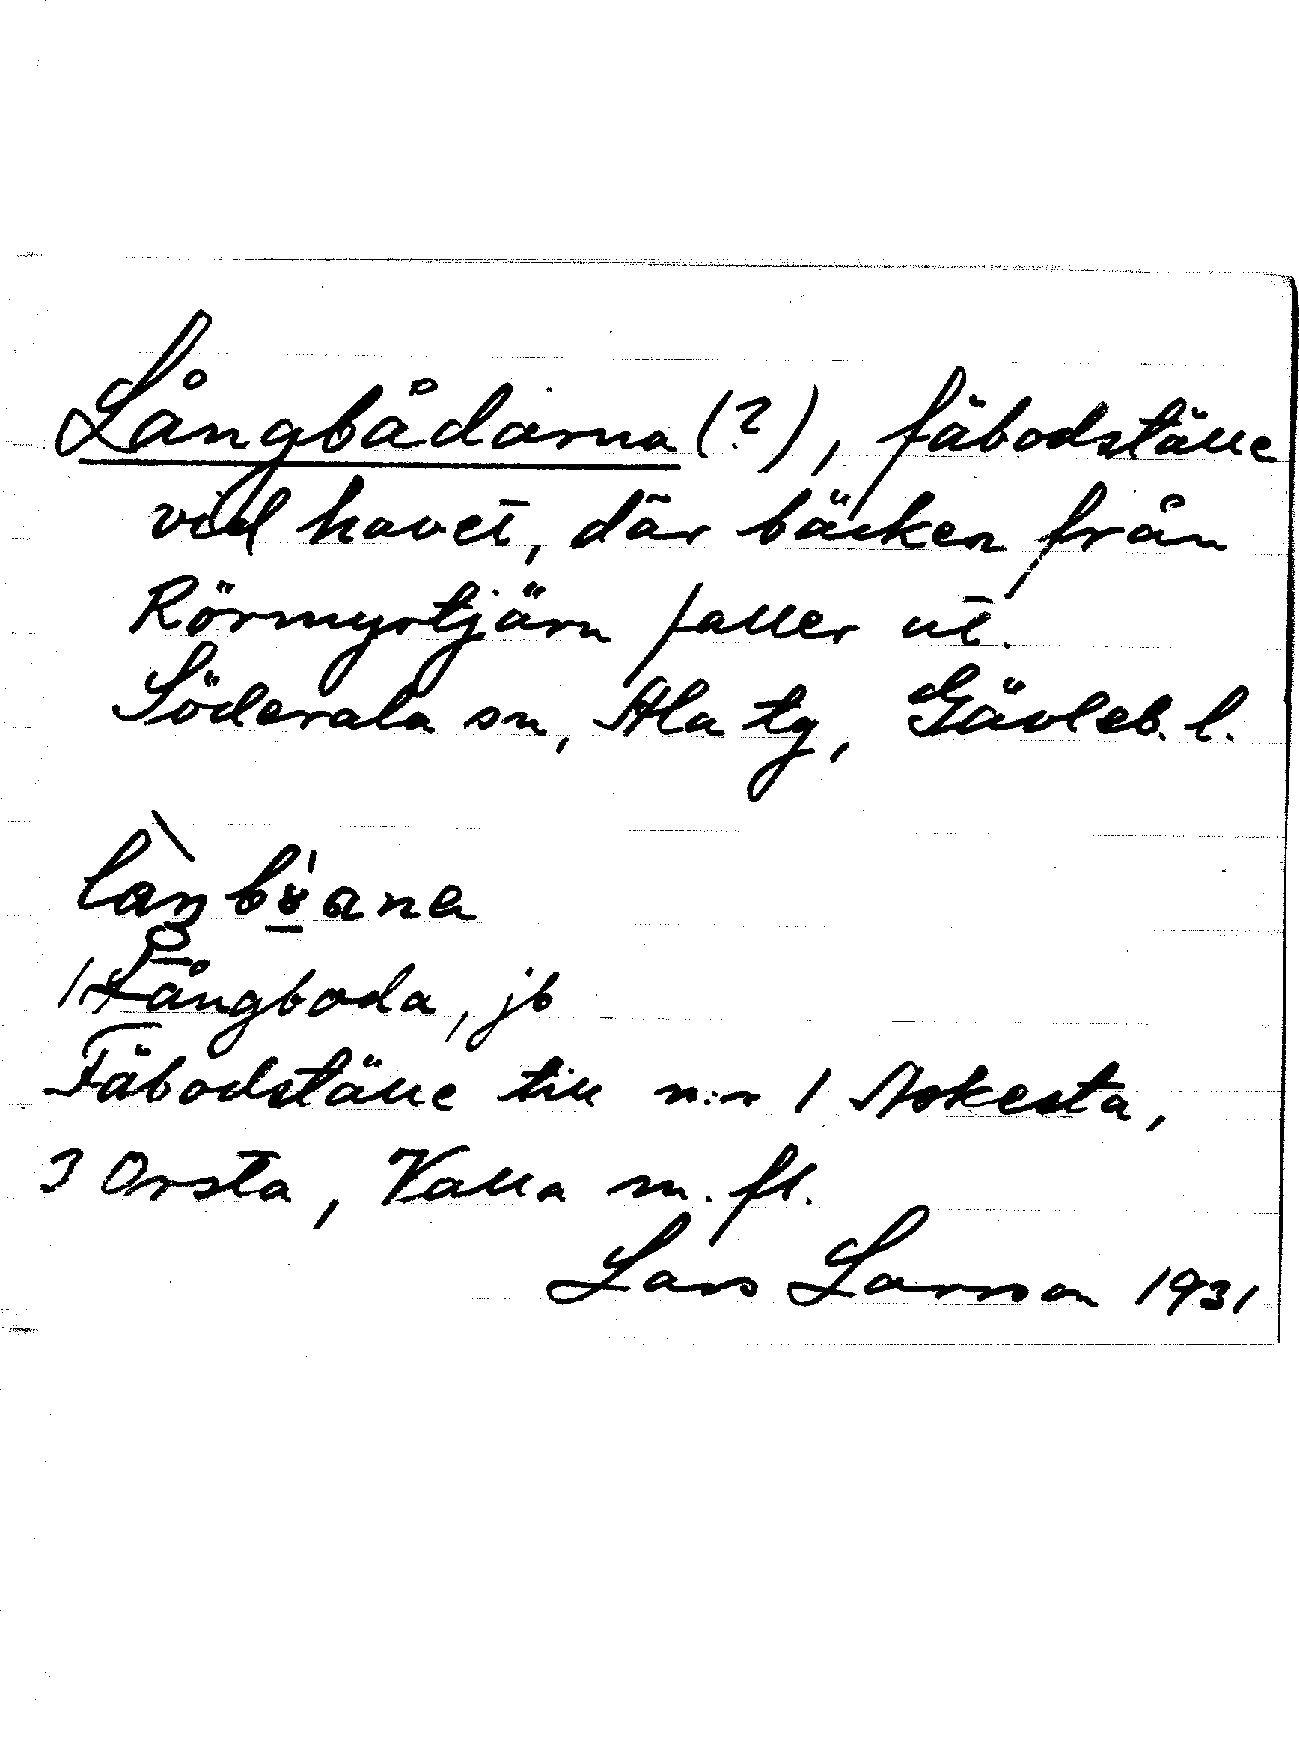 Långbådarna (?), fäbodställe
vid havet, där bäcken från
Rörmyrtjärn faller ut.
Söderala sn, Ala tg, Gävleb. l.
Långboda, jb
Fäbodställe till n:r 1 Askesta,
3 Orsta, Valla m. fl.
Lars Larsson 1931